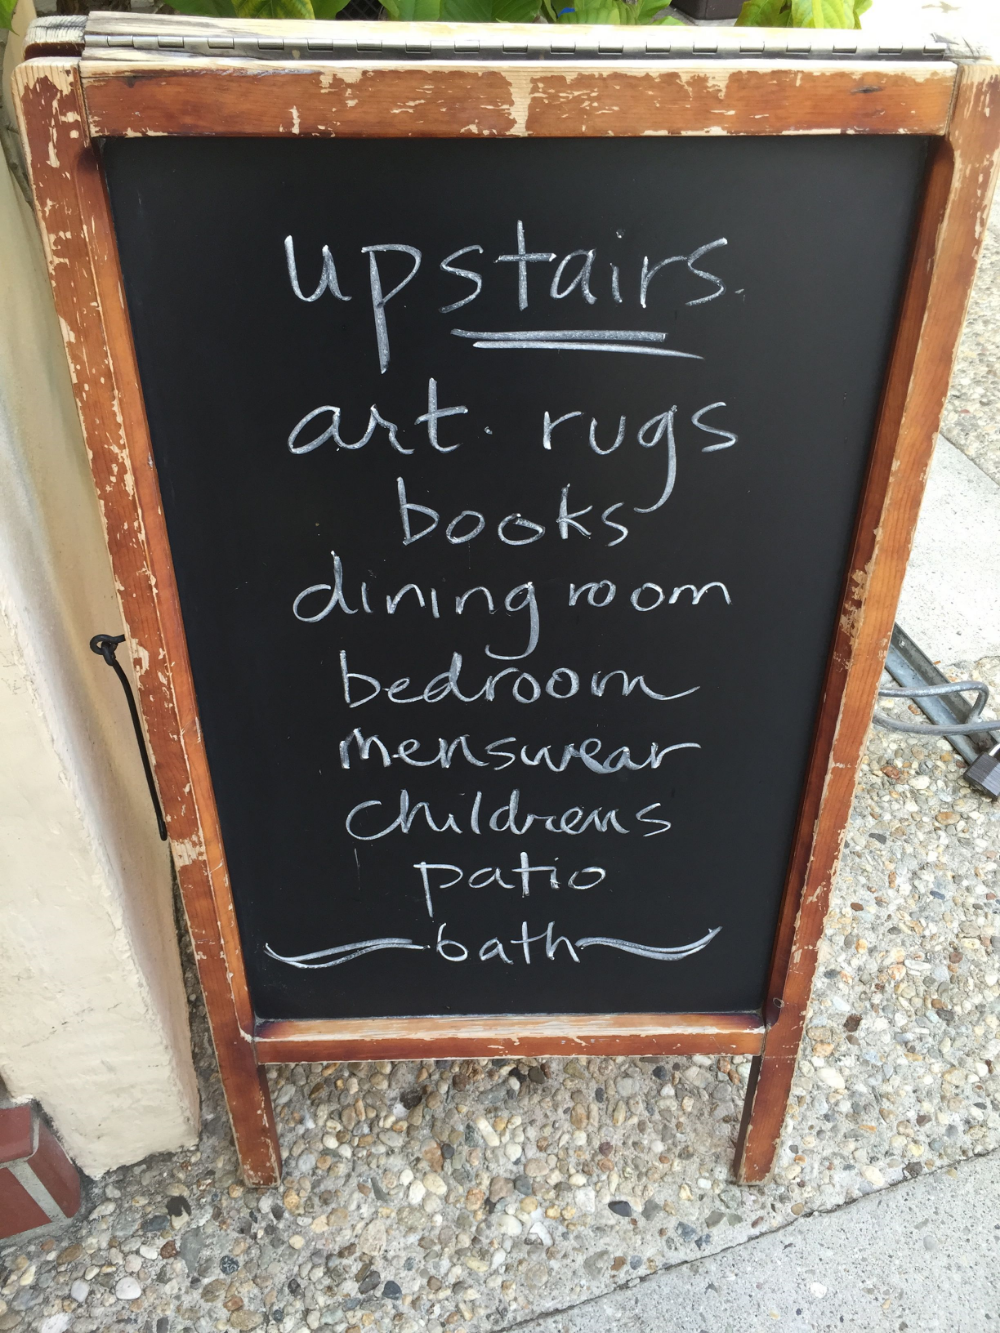 upstairs
art. rugs
books
dining room
bedroom
menswear
childrens
patio
bath